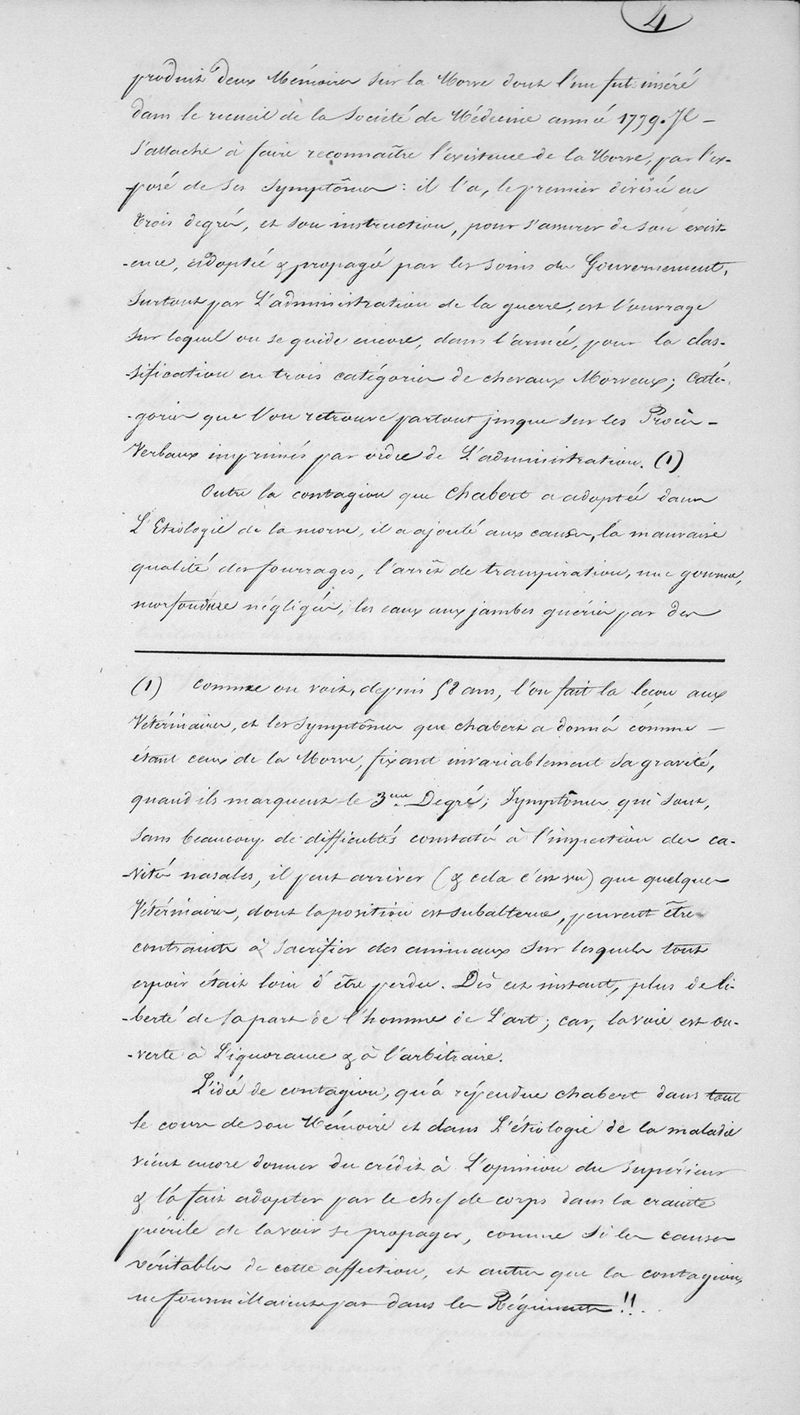 4
produit deux Mémoires sur la Morve dont l'un fut inséré
dans le recueil de la Société de Médecine année 1779. Il –
s'attache à faire reconnaître l'existence de la Morve, par l'ex-
posé de ses Symptômes : il l'a, le premier divisée en
trois degrés, et son instruction, pour s'assurer de son exist-
-ence, adoptée & propagée par les soins du Gouvernement,
surtout par L'administration de la guerre, est l'ouvrage
sur lequel on se guide encore, dans l'armée, pour la clas-
-sification en trois catégories de chevaux Morveux ; caté-
-gories que l'on retrouve partout jusque sur les Procès –
Verbaux imprimés par ordre de L'administration. (1)
Outre la contagion que Chabert a adoptée dans
L'Etiologie de la morve, il a ajouté aux causes, la mauvaise
qualité des fourrages, l'arrêt de transpiration, une gourme,
morfondure négligées, les eaux aux jambes guéries par des
(1) Comme on voit, depuis 58 ans, l'on fait la leçon aux
Vétérinaires, et les symptômes que chabert a donnés comme –
étant ceux de la Morve, fixant invariablement sa gravité,
quand ils marquent le 3eme Degré ; Symptômes qui sont,
sans beaucoup de difficultés constatés à l'inspection des ca-
-vités nasales, il peut arriver (& cela c'est vu) que quelques
Vétérinaires, dont la position est subalterne, peuvent être
contraints à sacrifier des animaux sur lesquels tout
espoir était loin d'être perdu. Dès cet instant, plus de li-
-berté de la part de l'homme de L'art ; car, la voie est ou-
-verte à L'ignorance & à l'arbitraire.
L'idée de contagion, qu'a répendue chabert dans tout
le cours de son Mémoire et dans L'étiologie de la maladie
vient encore donner du crédit à L'opinion du supérieur
& l'a fait adopter par le chef de corps dans la crainte
puérile de la voir se propager, comme si les causes
véritables de cette affection, et autres que la contagion
ne fourmillaient pas dans les Régiments !!.